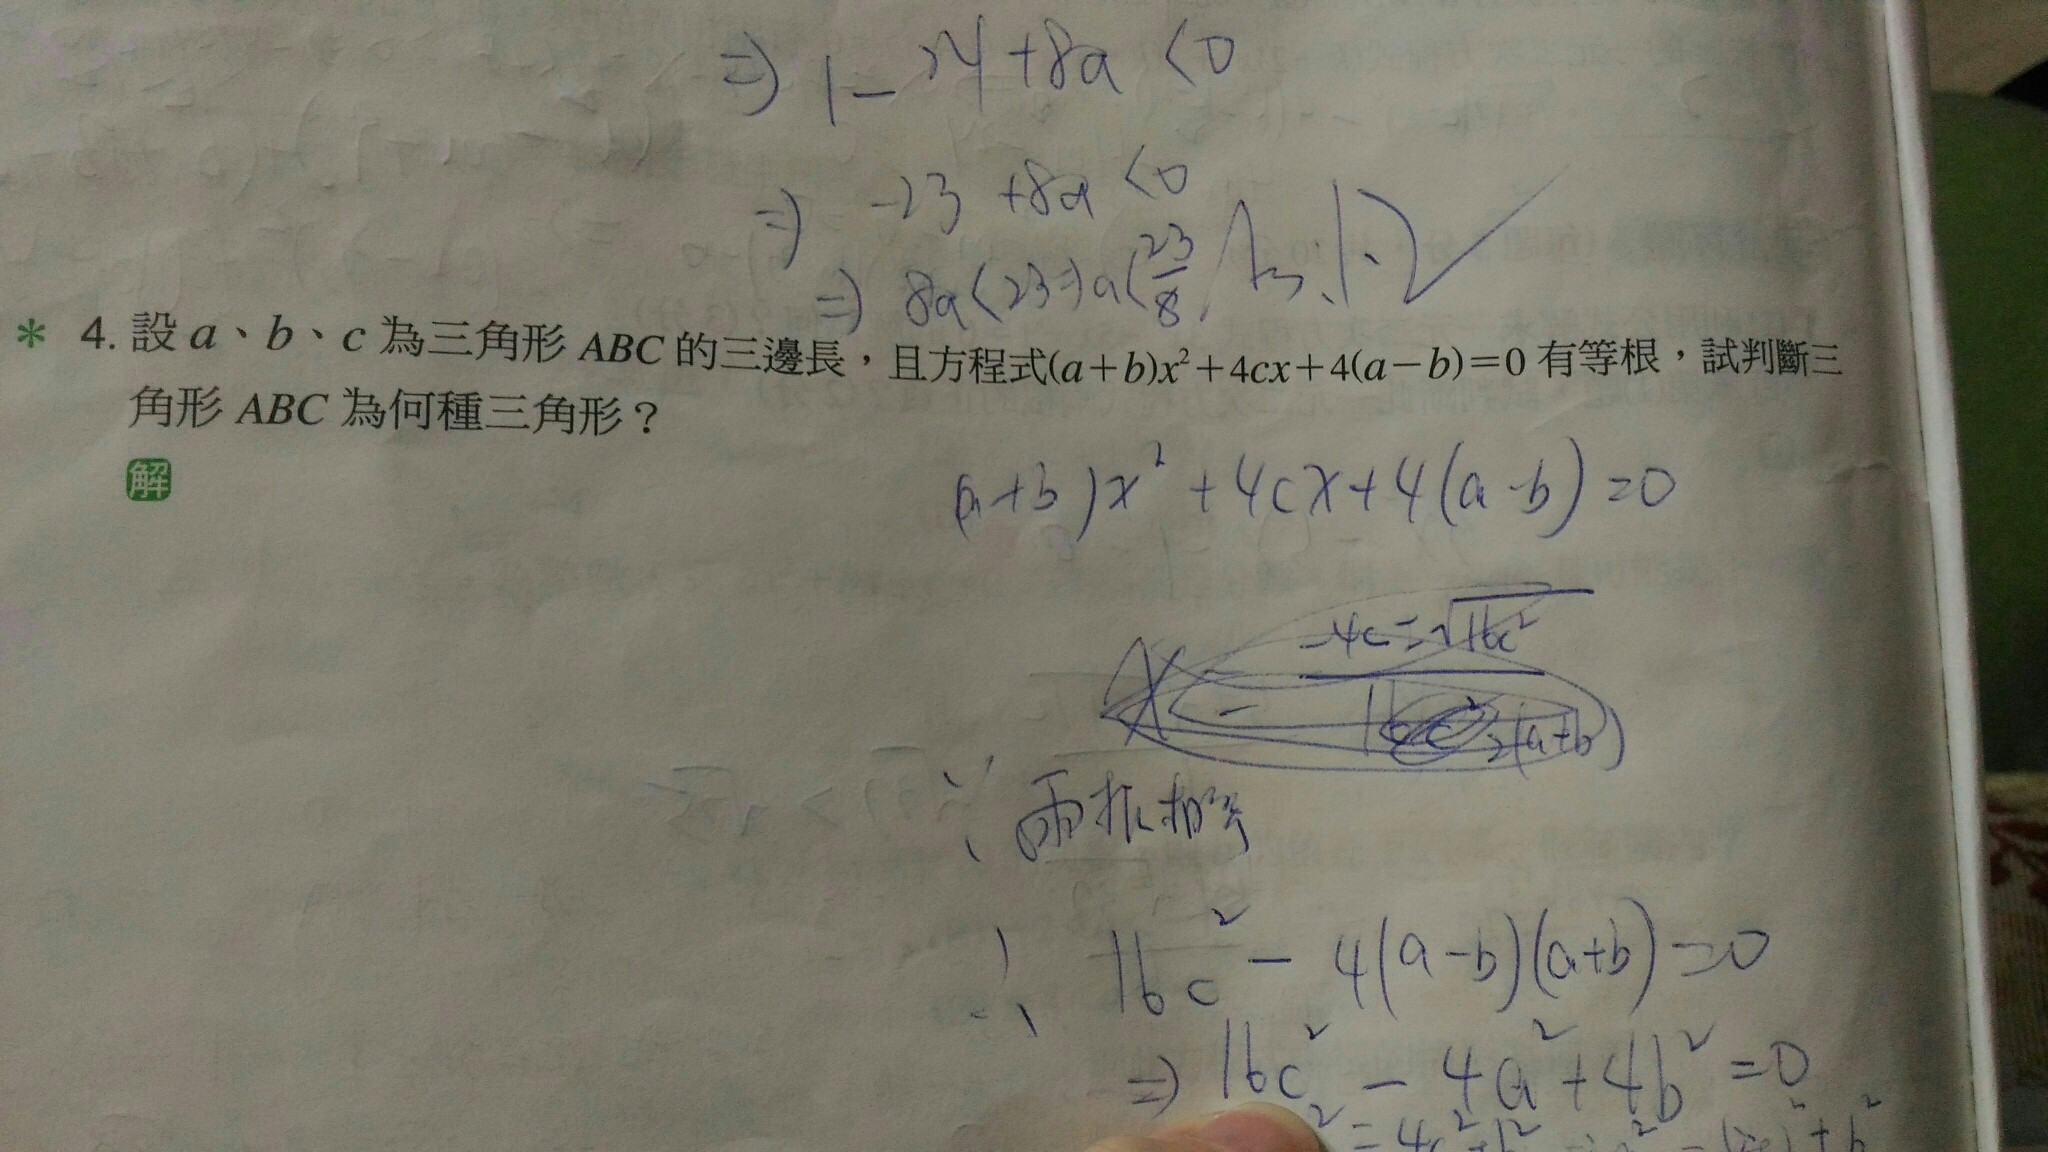 ⇒ 1-24+8a<0
⇒ -23+8a<0
⇒ 8a<23⇒a<23/8
* 4. 設 a、b、c 為三角形 ABC 的三邊長，且方程式(a+b)x²+4cx+4(a-b)=0 有等根，試判斷三
角形 ABC 為何種三角形？
解
(a+b)x²+4cx+4(a-b)=0
∵ 兩根相等
∴ 16c²-4(a-b)(a+b)=0
⇒ 16c²-4a²+4b²=0